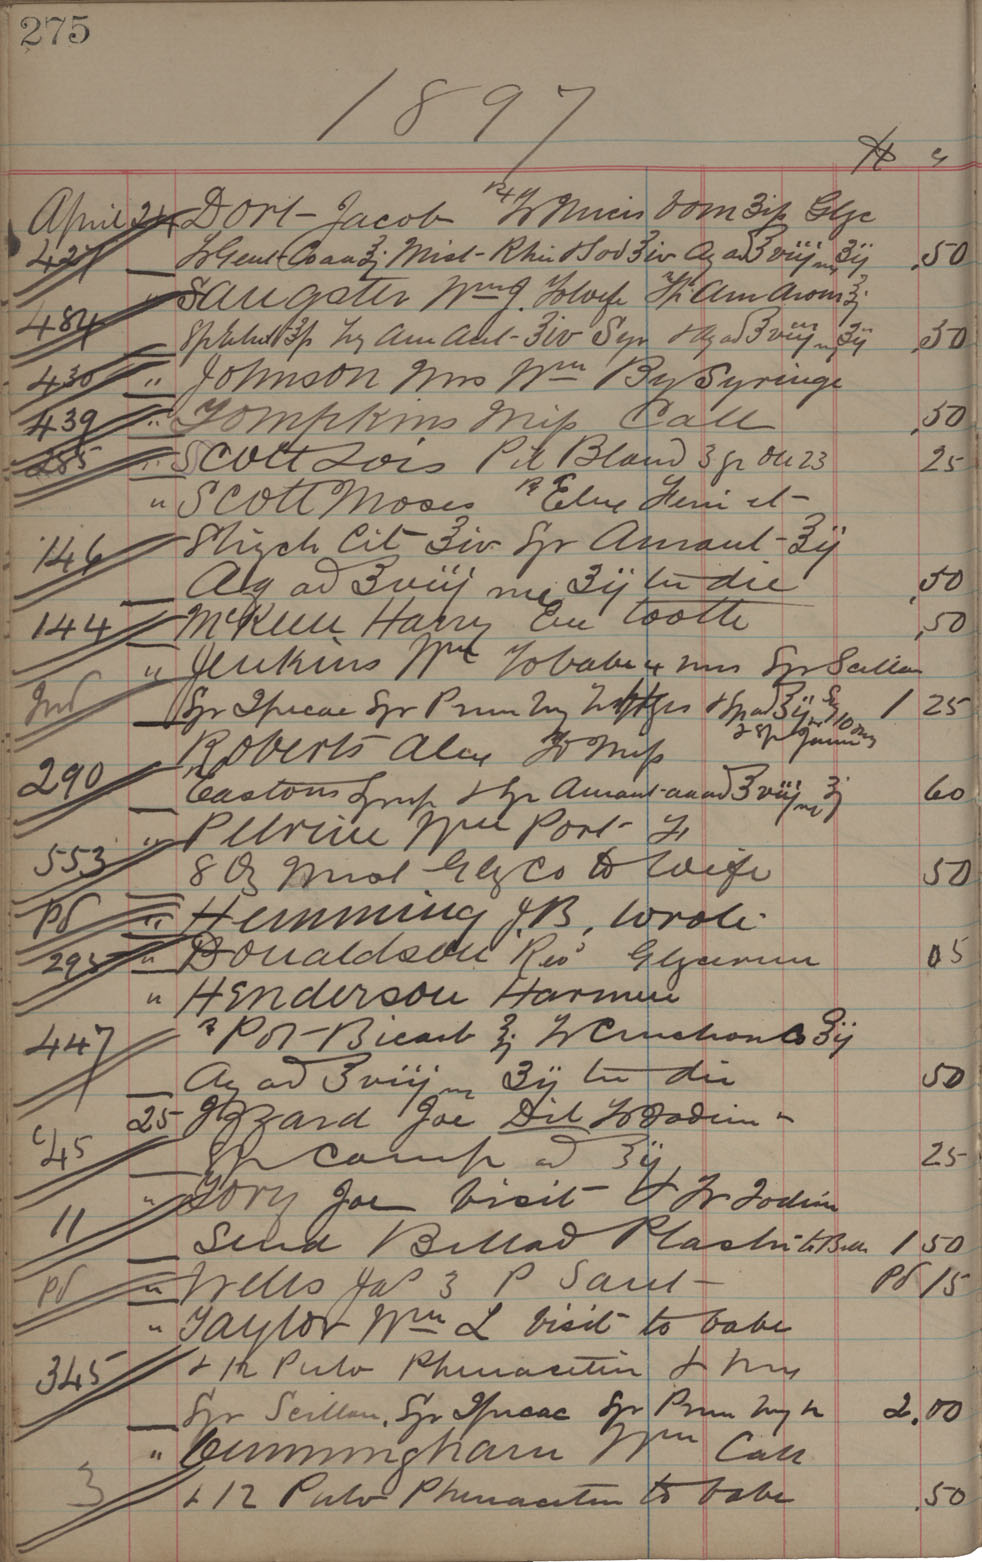 275
1897
$ c
April 24 Dort Jacob ℞ Tr Nucis Vom ʒiss Glyc
427 Tr Gent Co aa ℥j Mist Rhei & Sod ℥iv Aq ad ℥viij ʒij .50
" Sangster Wm J. To wife Am Arom
484 Aur ʒiv Syr & Aq ad ℥viij ʒij .50
430 " Johnson Mrs Wm By Syringe
439 " Tompkins Miss Call .50
285 " Scott Lois Pil Blaud 3 gr 25
" Scott Moses ℞ Elix Ferri et
146 Strych Cit ℥iv Syr Aurant ℥ij
Aq ad ℥viij ʒij ter die .50
144 " McKeen Harry Ex tooth .50
" Jenkins Wm To babe & Mrs Syr Scillae
Syr Ipecac Syr Prun Virg 1 25
290 Roberts Alex To Miss
Eastons Syrup & Syr Aurant aa ad ℥viij ʒj 60
" Petrine Wm Port
553 8 Oz Mist Glyc Co to wife 50
Pd " Hemming J.B. wrote
295 " Donaldson Rev Glycerine 05
" Henderson Harmen
447 ℞ Pot Bicarb ℥j Tr Cinchon Co ℥ij
Aq ad ℥viij ʒij ter die 50
25 Izzard Joe Dil Tr Iodin
45 Sp Camph ad ℥ij 25
" Tory Joe Visit & Tr Iodin
11 Send Bellad Plaster 1 50
Pd " Wells Jas 3 P Sant Pd 15
" Taylor Wm L Visit to babe
345 & 12 Pulv Phenacetin & Mrs
Syr Scillae, Syr Ipecac Syr Prun Virg 2.00
" Cunningham Wm Call
3 & 12 Pulv Phenacetin to babe .50